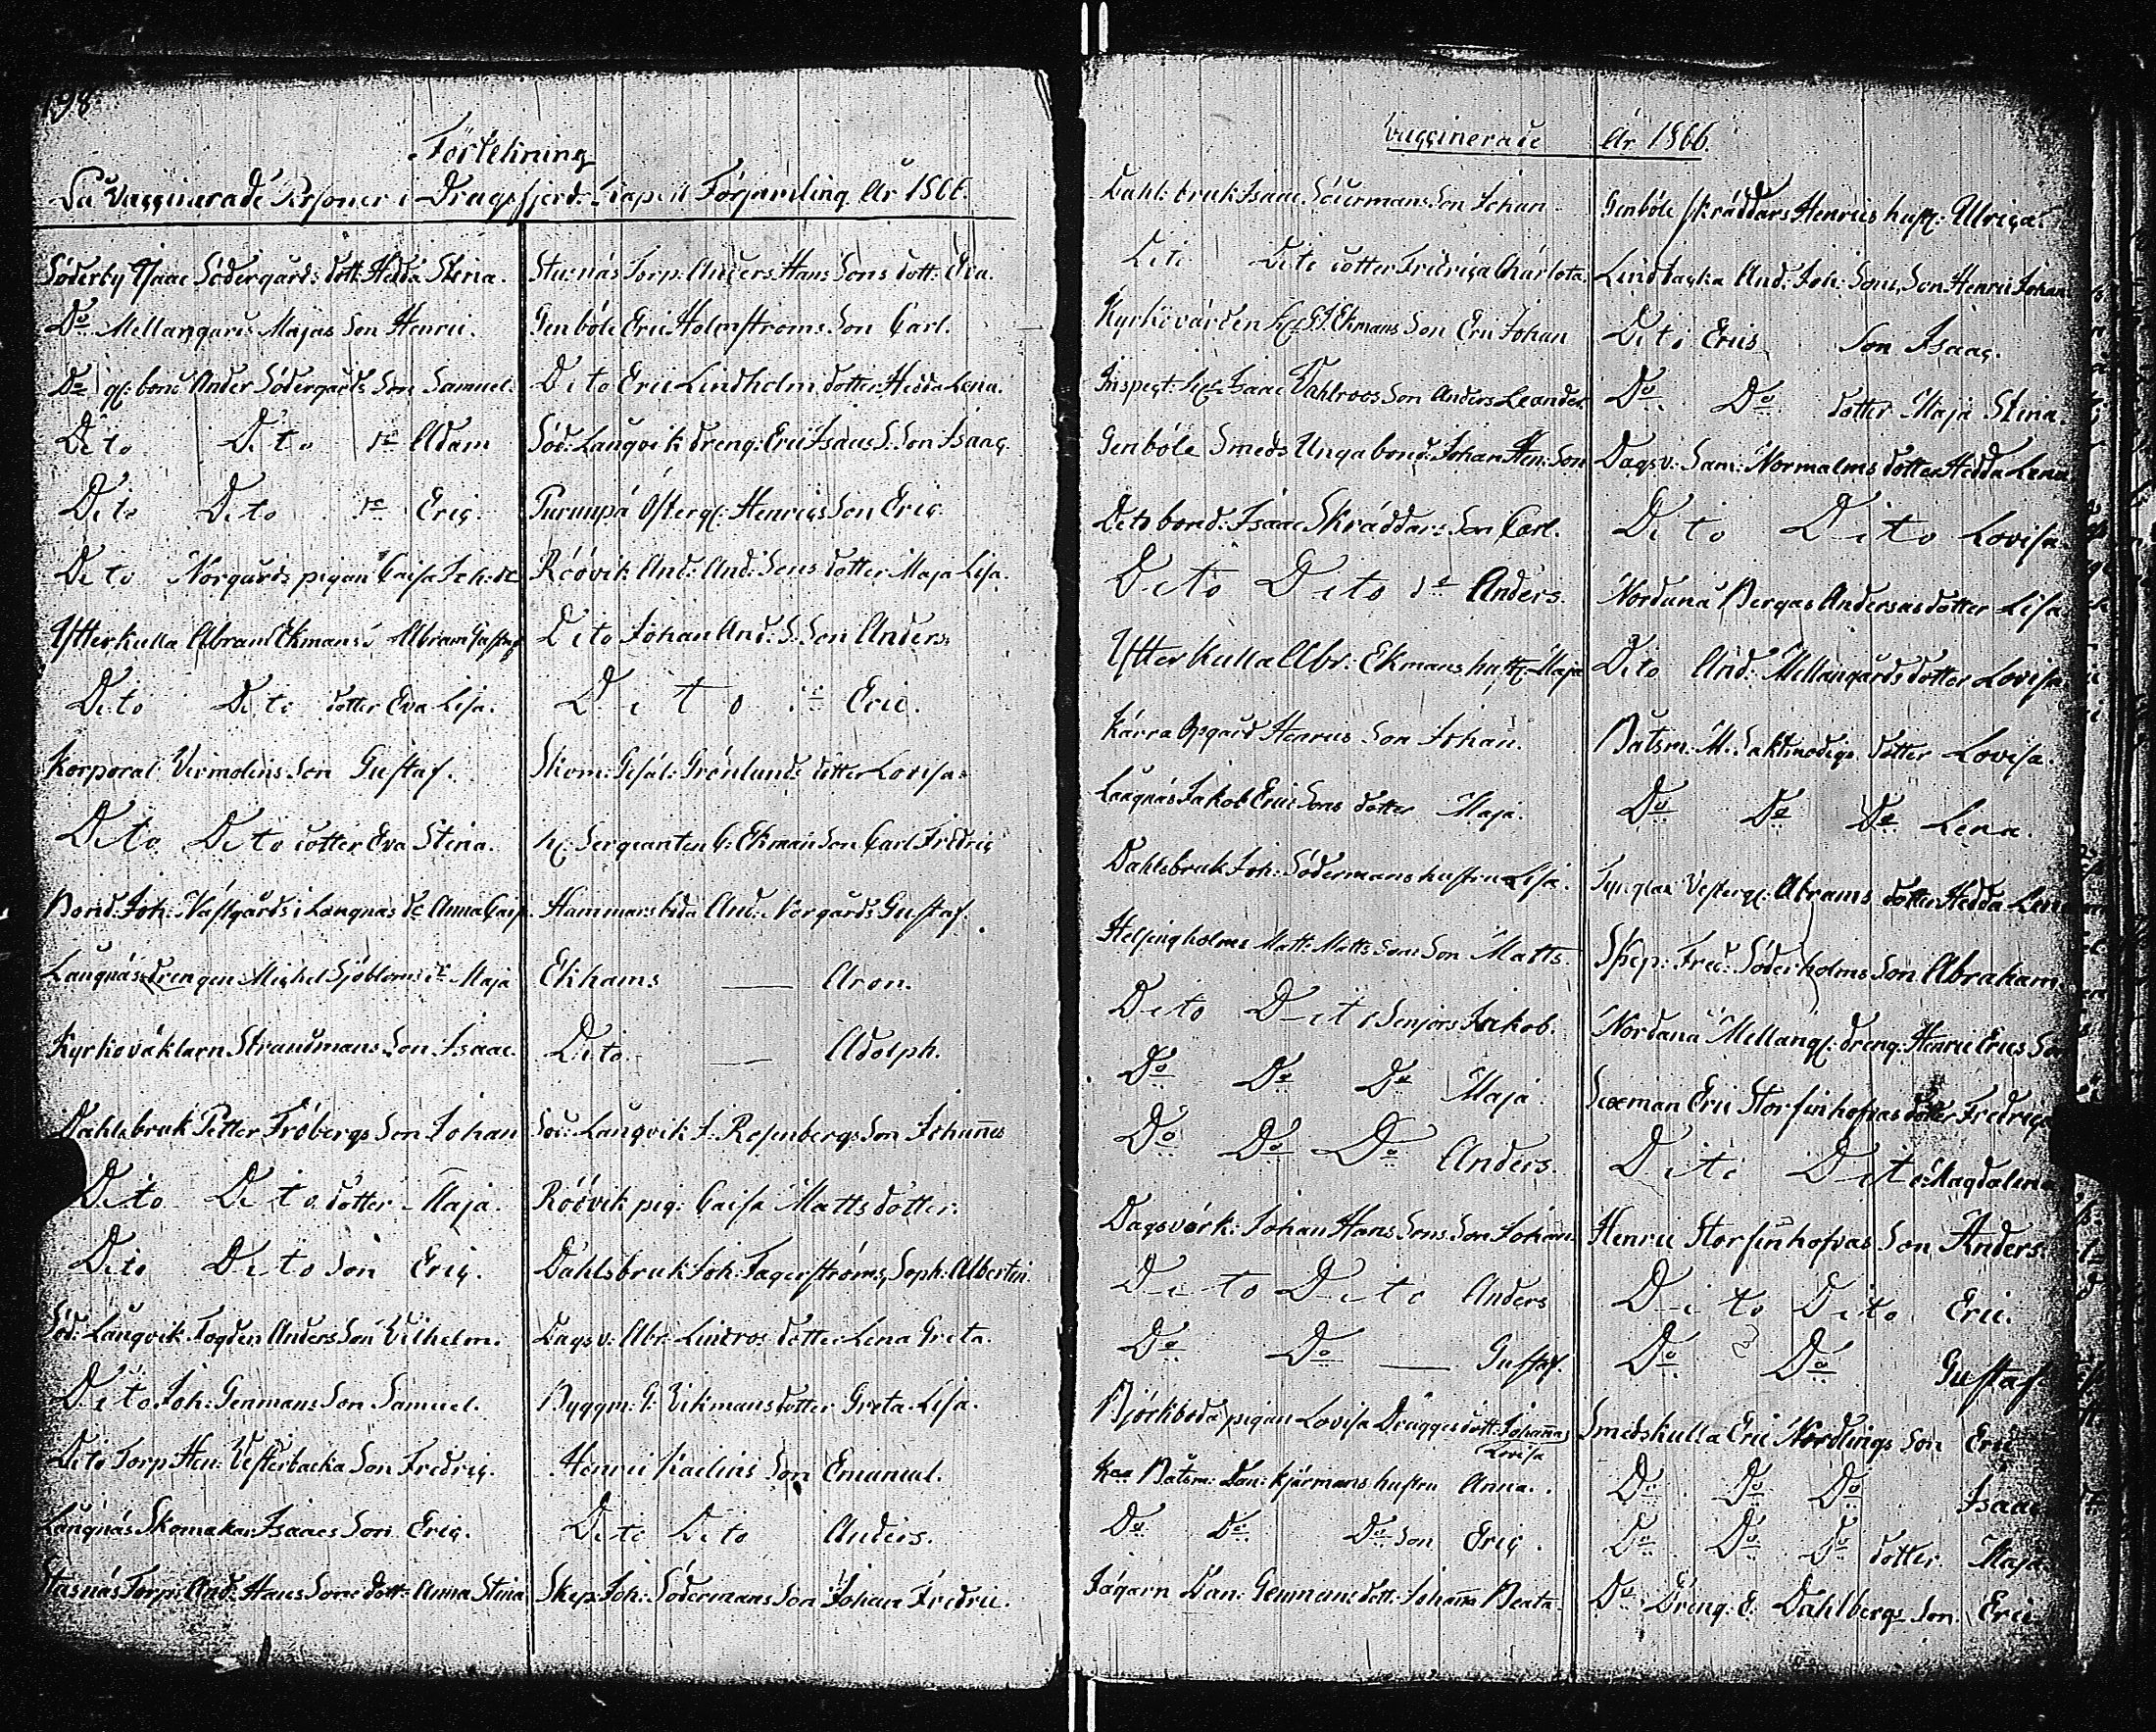 198
Förtekning
På Vaccinerade Personer i Dragsfjerds Kapell Församling År 1806
Söderby Isaac Södergårds dott: Hedda Stina.
Do Mellangårds Majas Son Henric.
Do gl: bond Ander Södergårds Son Samuel.
Dito Dito de Adam
Dito Dito de Eric.
Dito Norgårds pigan Caisa Joh: dr
Ytterkulla Abram Ekmans S Abram Gustaf
Dito Dito dotter Eva Lisa.
Korporal Virmolins Son Gustaf.
Dito Dito dotter Eva Stina.
Bond. Joh: Västgårds i Långnäs dr Anna Caisa
Långnäs drengen Michel Sjöbloms dr Maja
Kyrkoväktarn Strandmans Son Isaac.
Dahlsbruk Petter Fröbergs Son Johan
Dito Dito dotter Maja.
Dito Dito Son Eric.
Söd: Långvik Fogden Anders Son Vilhelm.
Dito Joh: Genmans Son Samuel.
Dito Torp: Hen: Vesterbacka Son Fredric.
Långnäs Skomakar Isaacs Son Eric.
Stusnäs Torp: And: Hans Sons dott: Anna Stina
Stusnäs Torp: Anders Hans Sons dott: Eva.
Genböle Eric Holmströms Son Carl.
Dito Eric Lindholm dotter Hedda Lena.
Söd: Långvik dreng: Eric Isacs S. Son Isaac.
Purunpä Östergl: Henrics Son Eric.
Röövik And: And: Sons dotter Maja Lisa.
Dito Johan And: S: Son Anders.
Dito de Eric.
Skom: Gesäl: Grönlunds dotter Lovisa.
hr Serganten C: Ekman Son Carl Fredric
Hammarsboda And: Norgårds Gustaf.
Ekhams — Aron.
Dito — Adolph.
Söd: Långvik J: Rosenbergs Son Johannes
Röövik pig: Caisa Matts dotter.
Dahlsbruk Joh: Fagerströms Soph: Albertin
Dagsv: Abr: Lindros dotter Lena Greta.
Byggm: G: Vikmans dotter Greta Lisa.
Henric Kaelins Son Emanuel.
Dito Dito Anders.
Skep: Joh: Södermans Son Johan Fredric.
Vaccinerade År 1806.
Dahls bruk Isaac Södermans Son Johan
Dito Dito dotter Fredrica Charlota.
Kyrkovärden G: J: Ekmans Son Eric Johan
Inspect: Isaac Wahlroos Son Anders Leander.
Genböle Smeds Unga bond: Johan Hen: Son
Dito bond: Isaac Skräddars Son Carl.
Dito Dito de Anders.
Ytterkulla Abr: Ekmans hustr: Maja
Kärra Opgård Henrics Son Johan.
Långnäs Jakob Eric Sons dotter Maja.
Dahlsbruk Joh: Södermans hustru Lisa.
Helsingholms Matt: Matts Sons Son Matts.
Dito Dito Senjors Jakob.
Do Do Do Maja.
Do Do Do Anders.
Dagsverk: Johan Hans Sons Son Johan.
Dito Dito Anders
Do Do — Gustaf.
Björkboda pigan Lovisa Dragges dott: Johanna
Lovisa
Båtsm: Dan: Kjärmans hustru Anna.
Do Do Do Son Eric.
Jägarn Dan: Genmans dott: Johanna Beata.
Genböle Skräddars Henrics hustr: Ulrica.
Lindbacka And: Joh: Sons, Son Henric Johan
Dito Erics Son Isaac.
Do Do dotter Maja Stina.
Dagsv: Sam: Normalms dotter Hedda Lena
Dito Dito Lovisa.
Nordanå Bergas Andersas dotter Lisa
Dito And: Mellangårds dotter Lovisa
Båtsm: M: Saktmodigs dotter Lovisa.
Do Do Do Lena.
Vestergl: Abrams dotter Hedda Lena
Skep: Fred: Söderholms Son Abraham.
Nordanå Mellangl: dreng: Henric Erics Son
Sexman Eric Storfinhofvas dotter Fredrica
Dito Dito Magdalena
Henric Storfinhofvas Son Anders.
Dito Dito Eric.
Do Do Gustaf
Smedskulla Eric Nordlings Son Eric
Do Do Do Isaac
Do Do Do dotter Maja
Do Dreng: E: Dahlbergs Son Eric